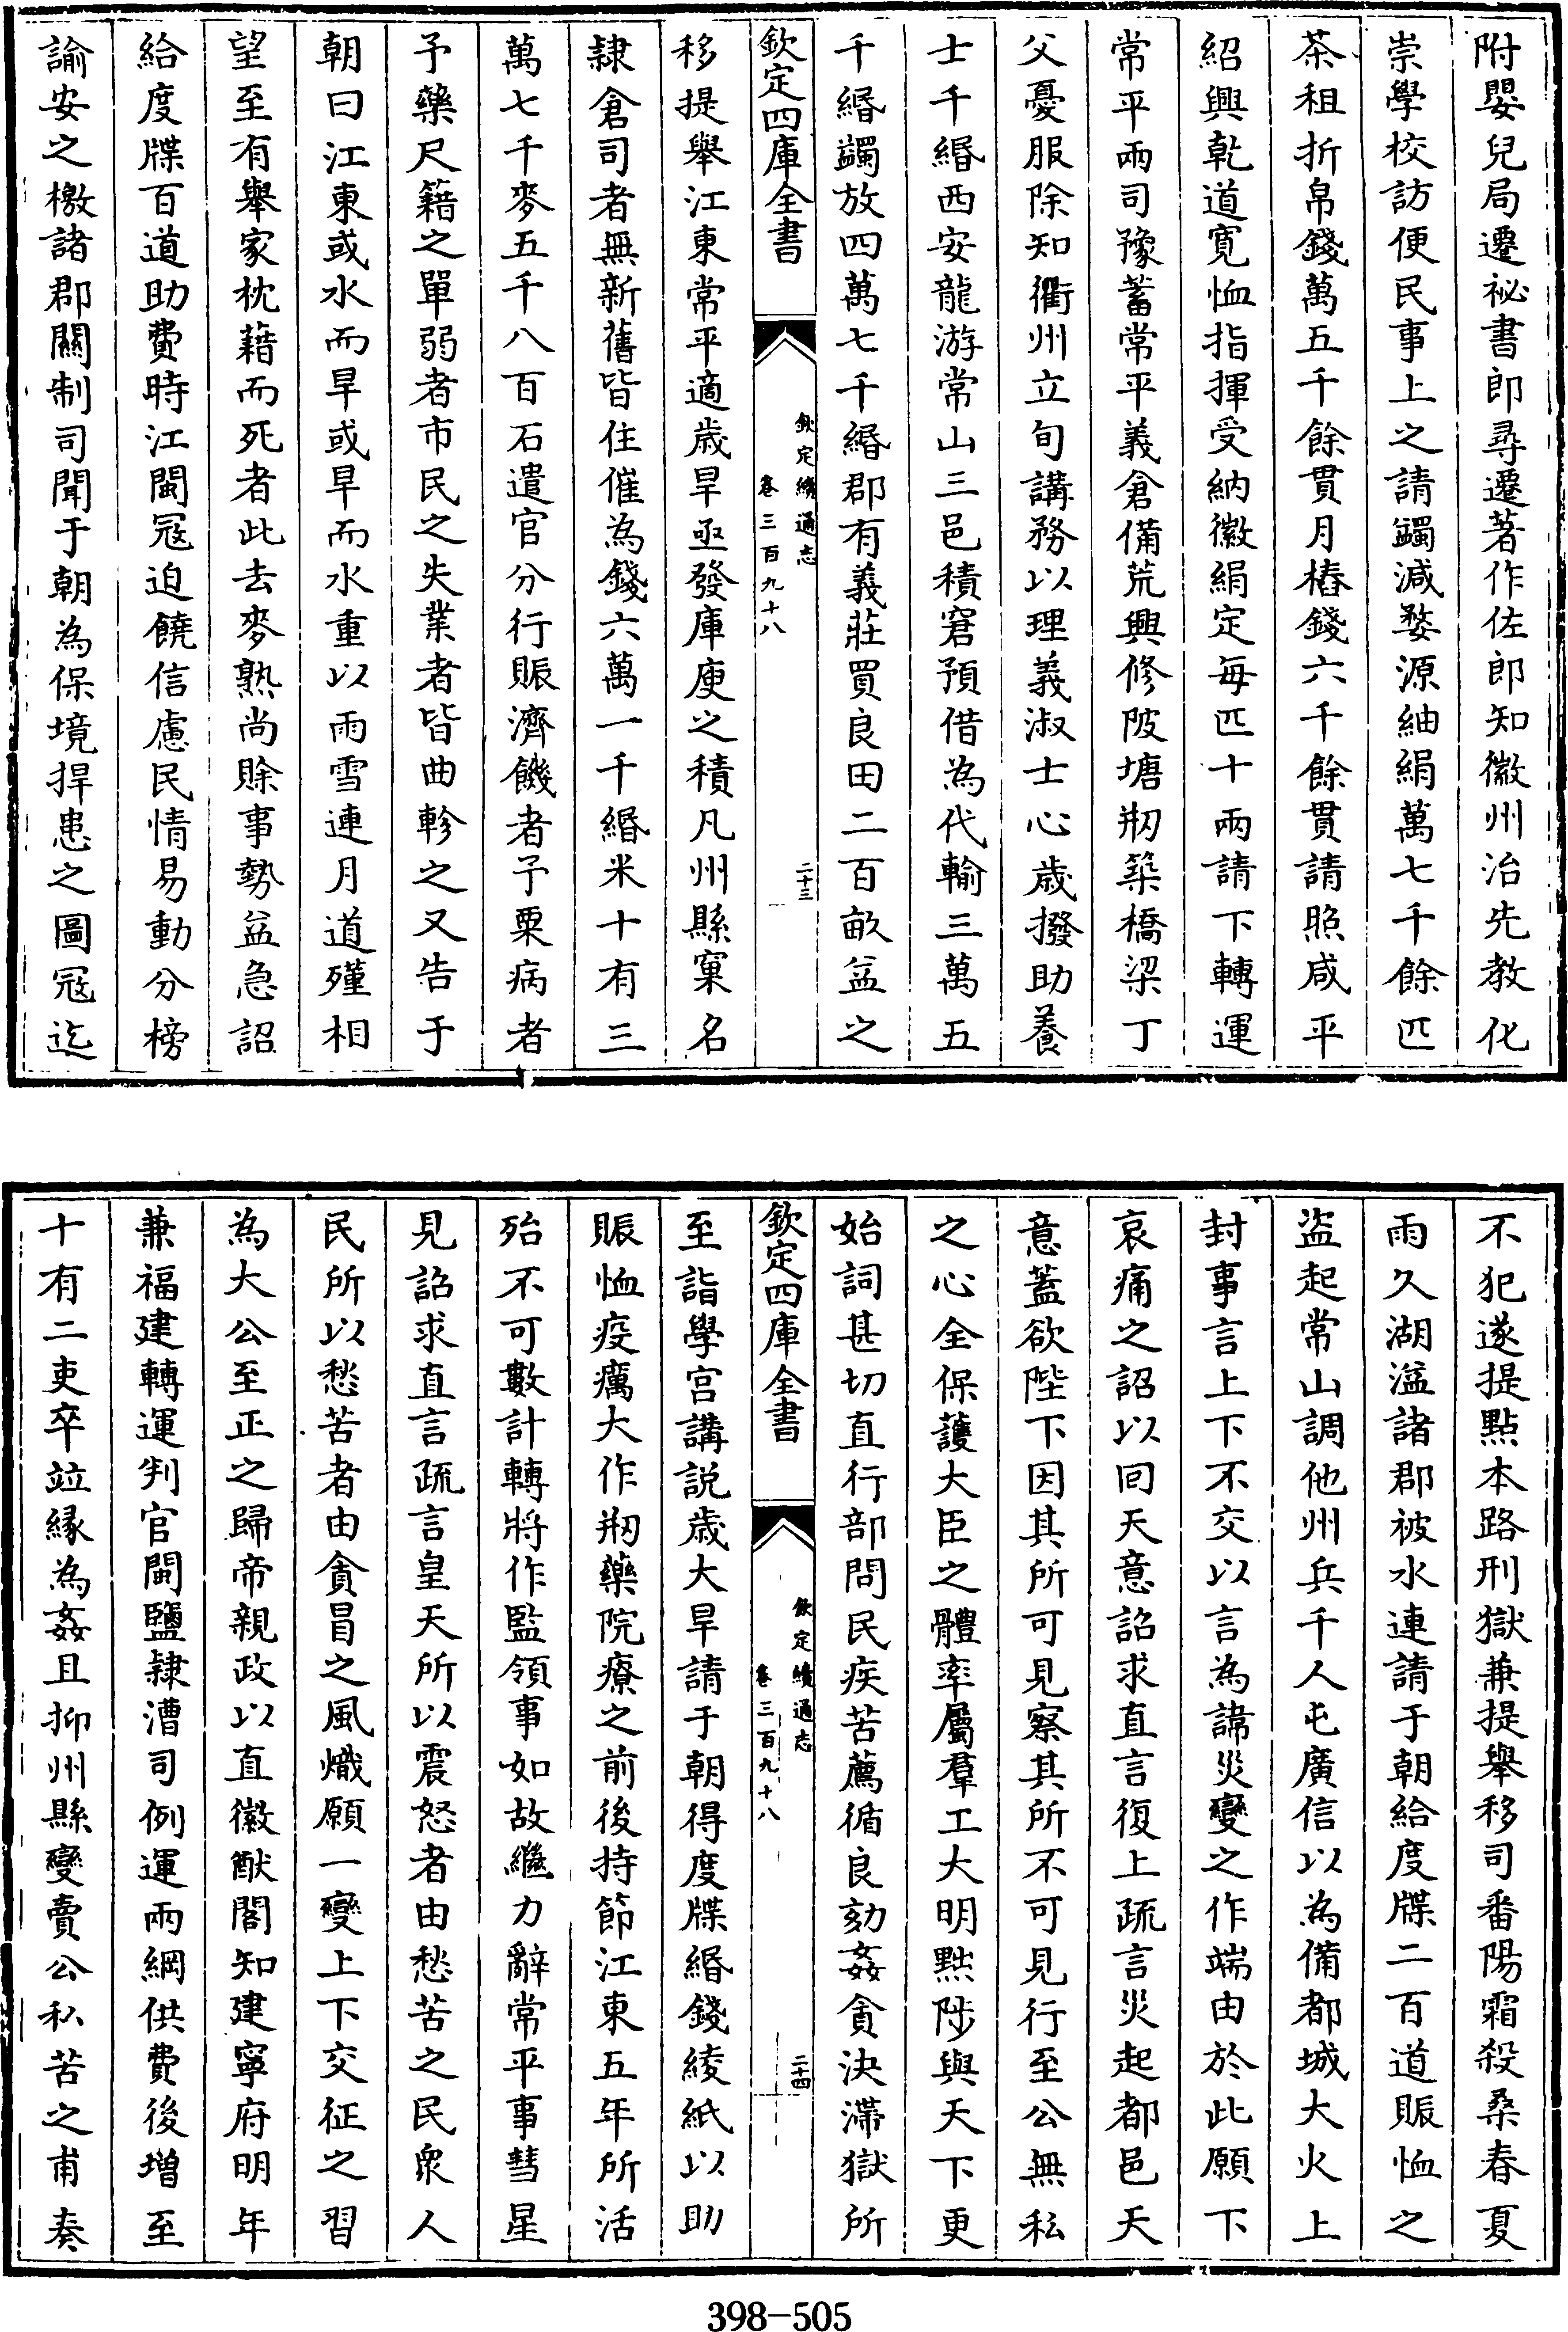 附嬰兒局遷祕書郎尋遷著作佐郎知徽州治先教化
崇學校訪便民事上之請蠲減婺源紬絹萬七千餘匹
茶租折帛錢萬五千餘貫月樁錢六千餘貫請照咸平
紹興乾道寛恤指揮受納徽絹定每匹十兩請下轉運
常平兩司豫蓄常平義倉備荒興修陂塘剏築橋梁丁
父憂服除知衢州立旬講務以理義淑士心歲撥助養
士千緡西安龍游常山三邑積窘預借為代輸三萬五
千緡蠲放四萬七千緡郡有義莊買良田二百畝益之
欽定四庫全書
欽定續通志
卷三百九十八
二十三
移提舉江東常平適歲旱亟發庫庾之積凡州縣窠名
隸倉司者無新舊皆住催為錢六萬一千緡米十有三
萬七千麥五千八百石遣官分行賑濟饑者予粟病者
予藥尺籍之單弱者市民之失業者皆曲軫之又告于
朝曰江東或水而旱或旱而水重以雨雪連月道殣相
望至有舉家枕藉而死者此去麥熟尚賒事勢益急詔
給度牒百道助費時江閩冦迫饒信慮民情易動分榜
諭安之檄諸郡關制司聞于朝為保境捍患之圖冦迄
不犯遂提點本路刑獄兼提舉移司番陽霜殺桑春夏
雨久湖溢諸郡被水連請于朝給度牒二百道賑恤之
盜起常山調他州兵千人屯廣信以為備都城大火上
封事言上下不交以言為諱災變之作端由於此願下
哀痛之詔以回天意詔求直言復上疏言災起都邑天
意蓋欲陛下因其所可見察其所不可見行至公無私
之心全保護大臣之體率屬羣工大明黜陟與天下更
始詞甚切直行部問民疾苦薦循良劾姦貪決滯獄所
欽定四庫全書
欽定續通志
卷三百九十八
二十四
至詣學宮講説歲大旱請于朝得度牒緡錢綾紙以助
賑恤疫癘大作剏藥院療之前後持節江東五年所活
殆不可數計轉將作監領事如故繼力辭常平事彗星
見詔求直言疏言皇天所以震怒者由愁苦之民衆人
民所以愁苦者由貪冒之風熾願一變上下交征之習
為大公至正之歸帝親政以直徽猷閣知建寧府明年
兼福建轉運判官閩鹽隸漕司例運兩綱供費後增至
十有二吏卒竝緣為姦且抑州縣變賣公私苦之甫奏
398-505